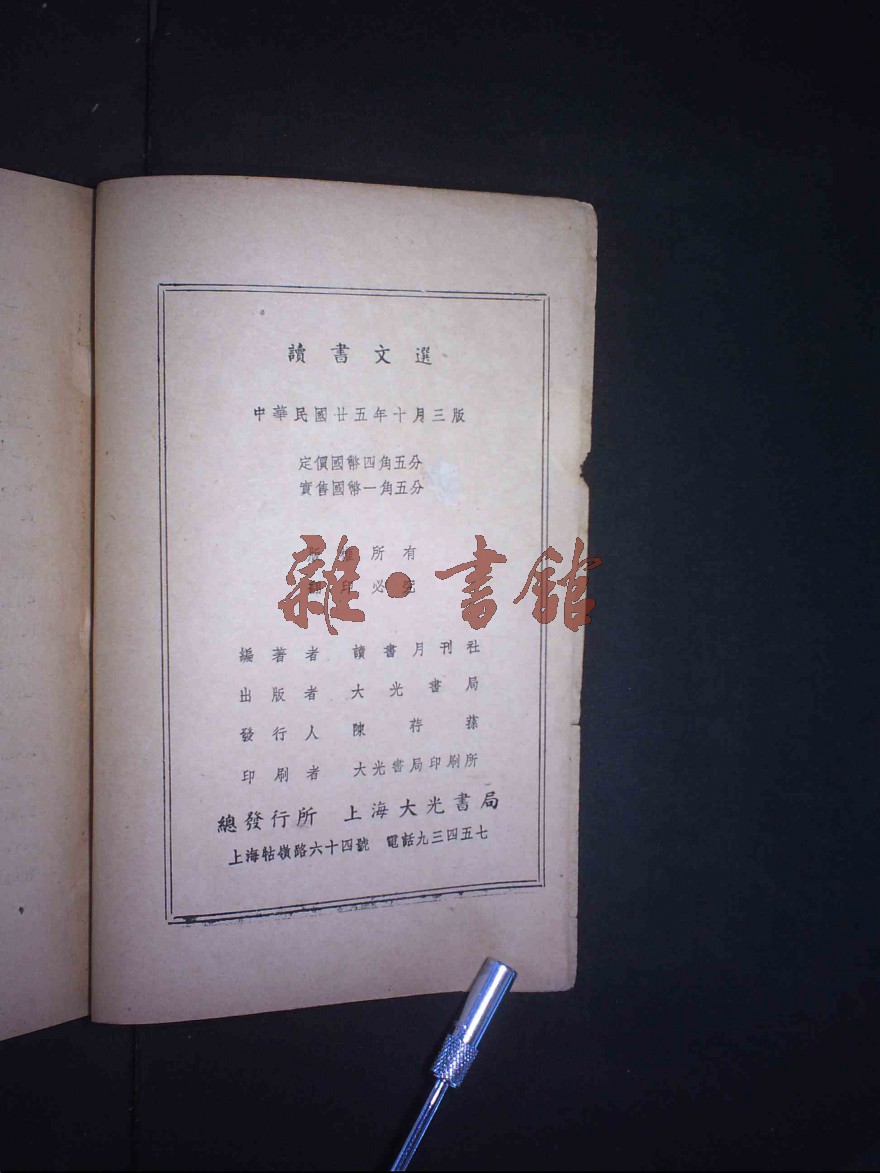 讀書文選
中華民國廿五年十月三版
定價國幣四角五分
實售國幣一角五分
版權所有
翻印必究
雜·書館
編著者 讀書月刊社
出版者 大光書局
發行人 陳荇蓀
印刷者 大光書局印刷所
總發行所 上海大光書局
上海牯嶺路六十四號 電話九三四五七